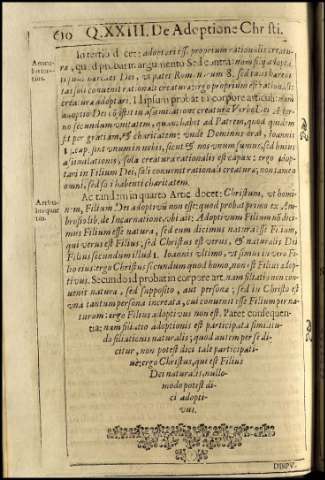 610 Q. XXIII. De Adoptione Christi.
In tertio dicet: adoptari esse proprium rationalis creatu-
ræ, quod probat in argumento Sed contra: nam filij adopta-
hæredes Dei, ut patet Roman. 8. sed
soli convenit rationali creaturæ: ergo proprium est rationali
creaturæ adoptari. probat in corpore articuli: nam
adoptio Dei consistit in assimilatione creaturæ Verbo
no secundum unitatem, quam habet ad Patrem, quod quidem
fit per gratiam, & charitatem: unde Dominus orat, Ioannis
cap. sint unum in nobis, sicut & nos unum sumus, sed huius
assimilationis, sola creatura rationalis est capax: ergo adop-
tari in Filium Dei, soli convenit rationali creaturæ, non tamen
omni, sed habenti charitatem.
Ac tandem in quarto Artic. docet: Christum, ut homi-
nem, Filium Dei adoptivum non esse: quod probat primo ex Am-
brosio lib. de Incarnatione, ubi ait: Adoptivum Filium non dici-
mus Filium esse natura, sed eum dicimus natura esse Filium,
qui verus est Filius, sed Christus est verus, & naturalis Dei
Filius secundum illud 1. Ioannis ultimo, ut simus in vero Fi-
lio eius: ergo Christus secundum quod homo, non est Filius adop-
tivus. Secundo id probat in corpore art. nam filiatio non con-
venit natura, sed supposito, aut persona; sed in Christo est
una tantum persona increata, cui convenit esse Filium per na-
turam: ergo Filius adoptivus non est. Patet consequen-
tia: nam filiatio adoptionis est participata similitu-
do filiationis naturalis; quod autem per se di-
citur, non potest dici tale participati-
vè: ergo Christus, qui est Filius
Dei naturalis, nullo-
modo potest di-
ci adopti-
vus.
DISPV-